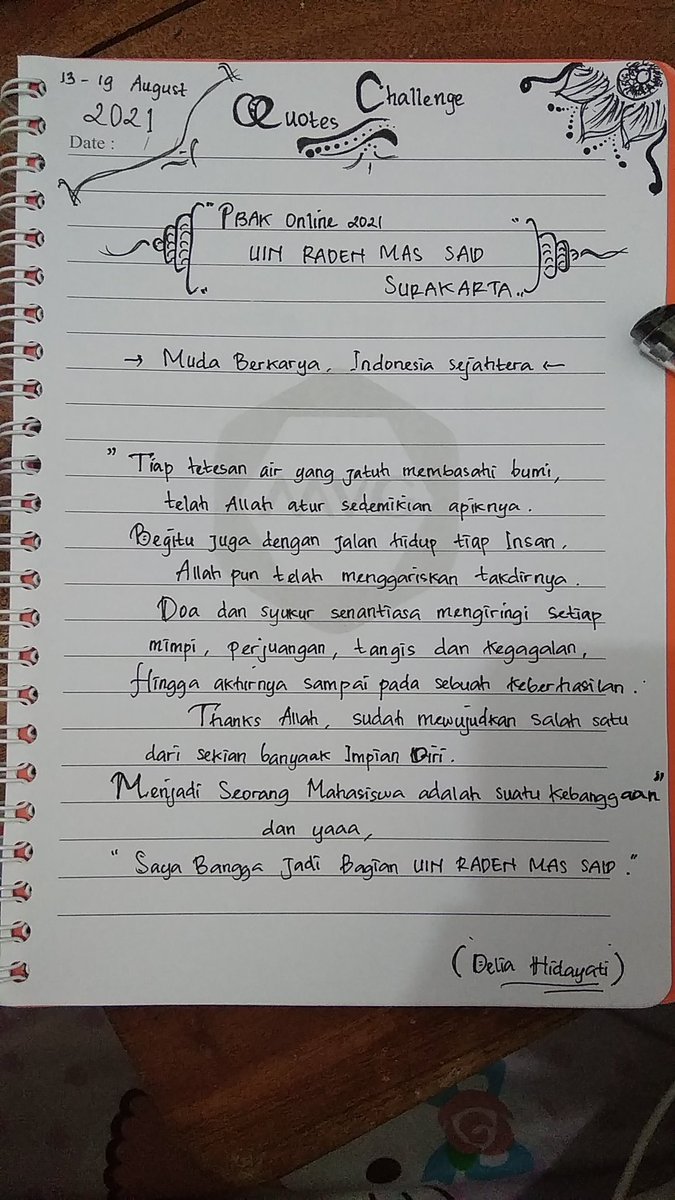 13 - 19 August
2021
Date : /
Quotes Challenge
" PBAK Online 2021 "
UIN RADEN MAS SAID
" SURAKARTA "
→ Muda Berkarya, Indonesia sejahtera ←
" Tiap tetesan air yang jatuh membasahi bumi,
telah Allah atur sedemikian apiknya.
Begitu juga dengan jalan hidup tiap Insan,
Allah pun telah menggariskan takdirnya.
Doa dan syukur senantiasa mengiringi setiap
mimpi, perjuangan, tangis dan kegagalan,
Hingga akhirnya sampai pada sebuah keberhasilan.
Thanks Allah, sudah mewujudkan salah satu
dari sekian banyaak Impian Diri.
Menjadi Seorang Mahasiswa adalah suatu Kebanggaan"
dan yaaa,
" Saya Bangga Jadi Bagian UIN RADEN MAS SAID ."
(Delia Hidayati)